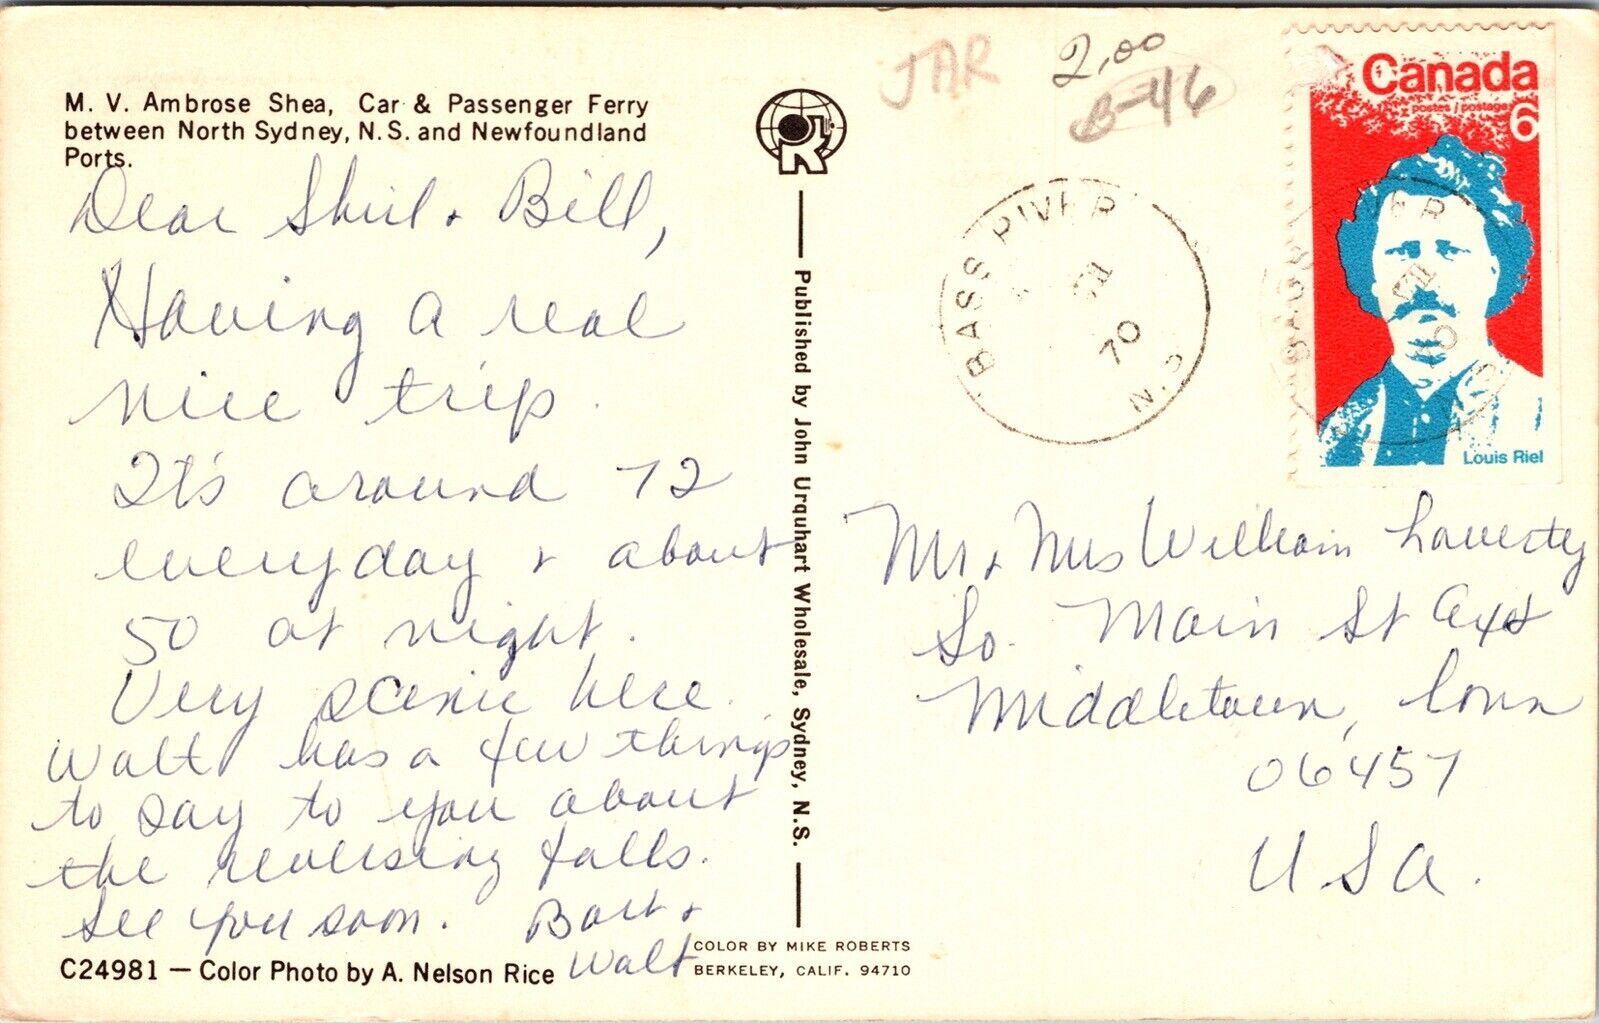 M. V. Ambrose Shea, Car & Passenger Ferry
between North Sydney, N.S. and Newfoundland
Ports.
Dear Shirl & Bill,
Having a real
nice trip.
It's around 72
everyday & about
50 at night.
Very scenic here.
Walt has a few things
to say to you about
the reversing falls.
See you soon. Bart &
Walt
C24981 — Color Photo by A. Nelson Rice
Published by John Urquhart Wholesale, Sydney, N.S.
COLOR BY MIKE ROBERTS
BERKELEY, CALIF. 94710
JAR
2.00
B-46
BASS RIVER
70
N.S.
Canada
postes / postage
6
Louis Riel
Mr & Mrs William Laverty
So. Main St Ext
Middletown, Conn
06457
USA.